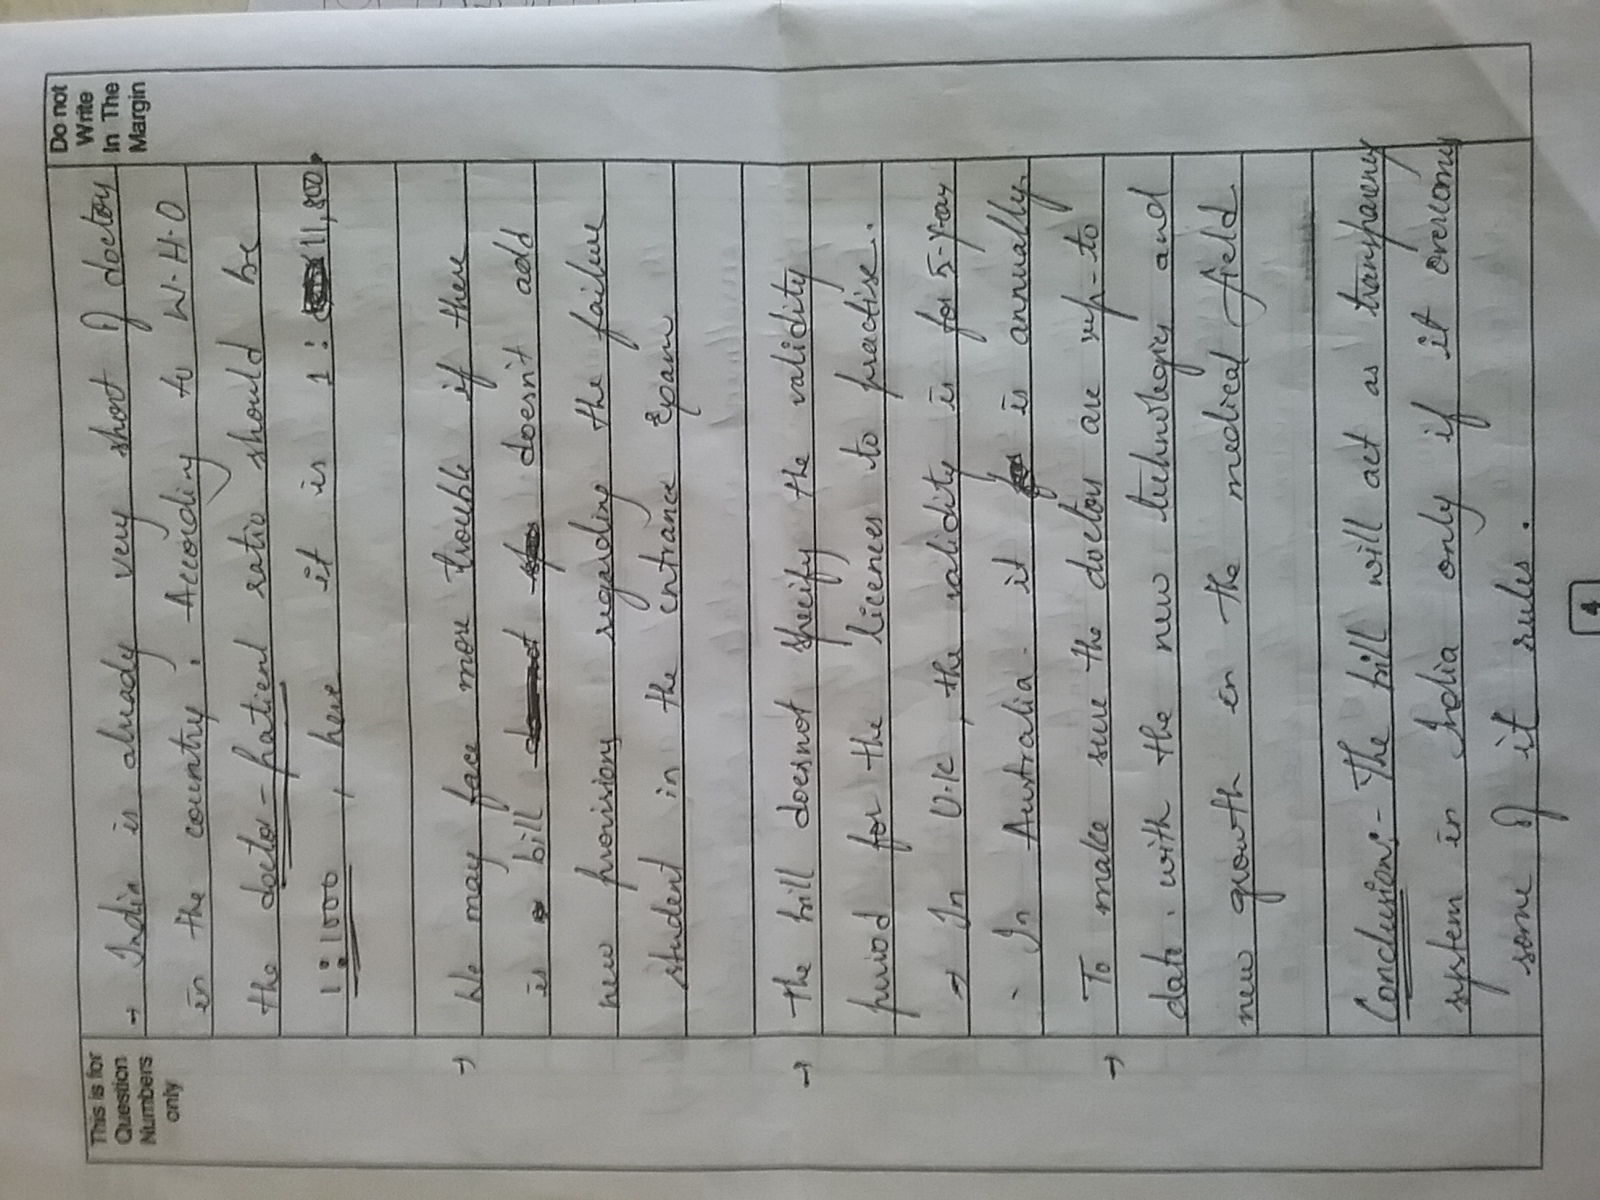 This is for
Question
Numbers
only
Do not
Write
In The
Margin
→ India is already very short of doctors
in the country. According to W.H.O
the doctor-patient ratio should be
1:1000, here it is 1: 11,800.
→ We may face more trouble if there
is bill doesn't add
new provisions regarding the failure
student in the entrance Exam
→ the bill doesnot specify the validity
period for the licences to practise.
→ In U.K, the validity is for 5-year
In Australia it is annually.
→ To make sure the doctors are up-to
date. with the new technologies and
new growth in the medical field
Conclusion:- The bill will act as transparency
system in India only if it overcome
some of it rules.
4